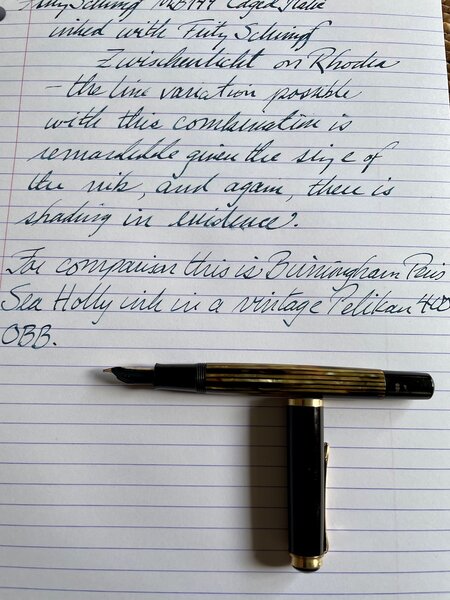 Fritz Schimpf MB 149 Caged Italic
inked with Fritz Schimpf
Zwischenlicht on Rhodia
- the line variation possible
with this combination is
remarkable given the size of
the nib, and again, there is
shading in evidence.
For comparison this is Birmingham Pens
Sea Holly ink in a vintage Pelikan 400
OBB.